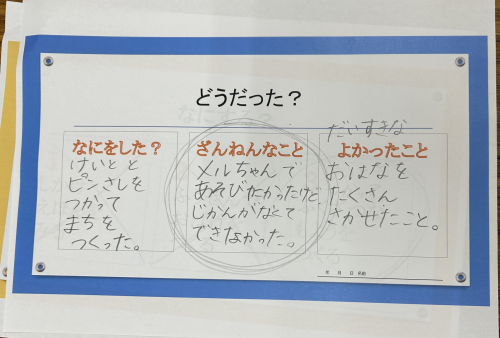 どうだった？
なにをした？
けいとと
ピンさしを
つかって
まちを
つくった。
ざんねんなこと
メルちゃんで
あそびたかったけど
じかんがなくて
できなかった。
だいすきな
よかったこと
おはなを
たくさん
さかせたこと。
年 月 日 名前